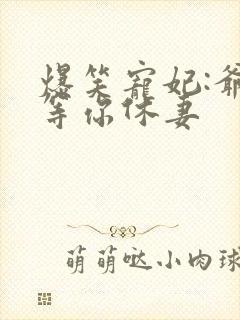 爆笑宠妃:爷
等你休妻
萌萌哒小肉球